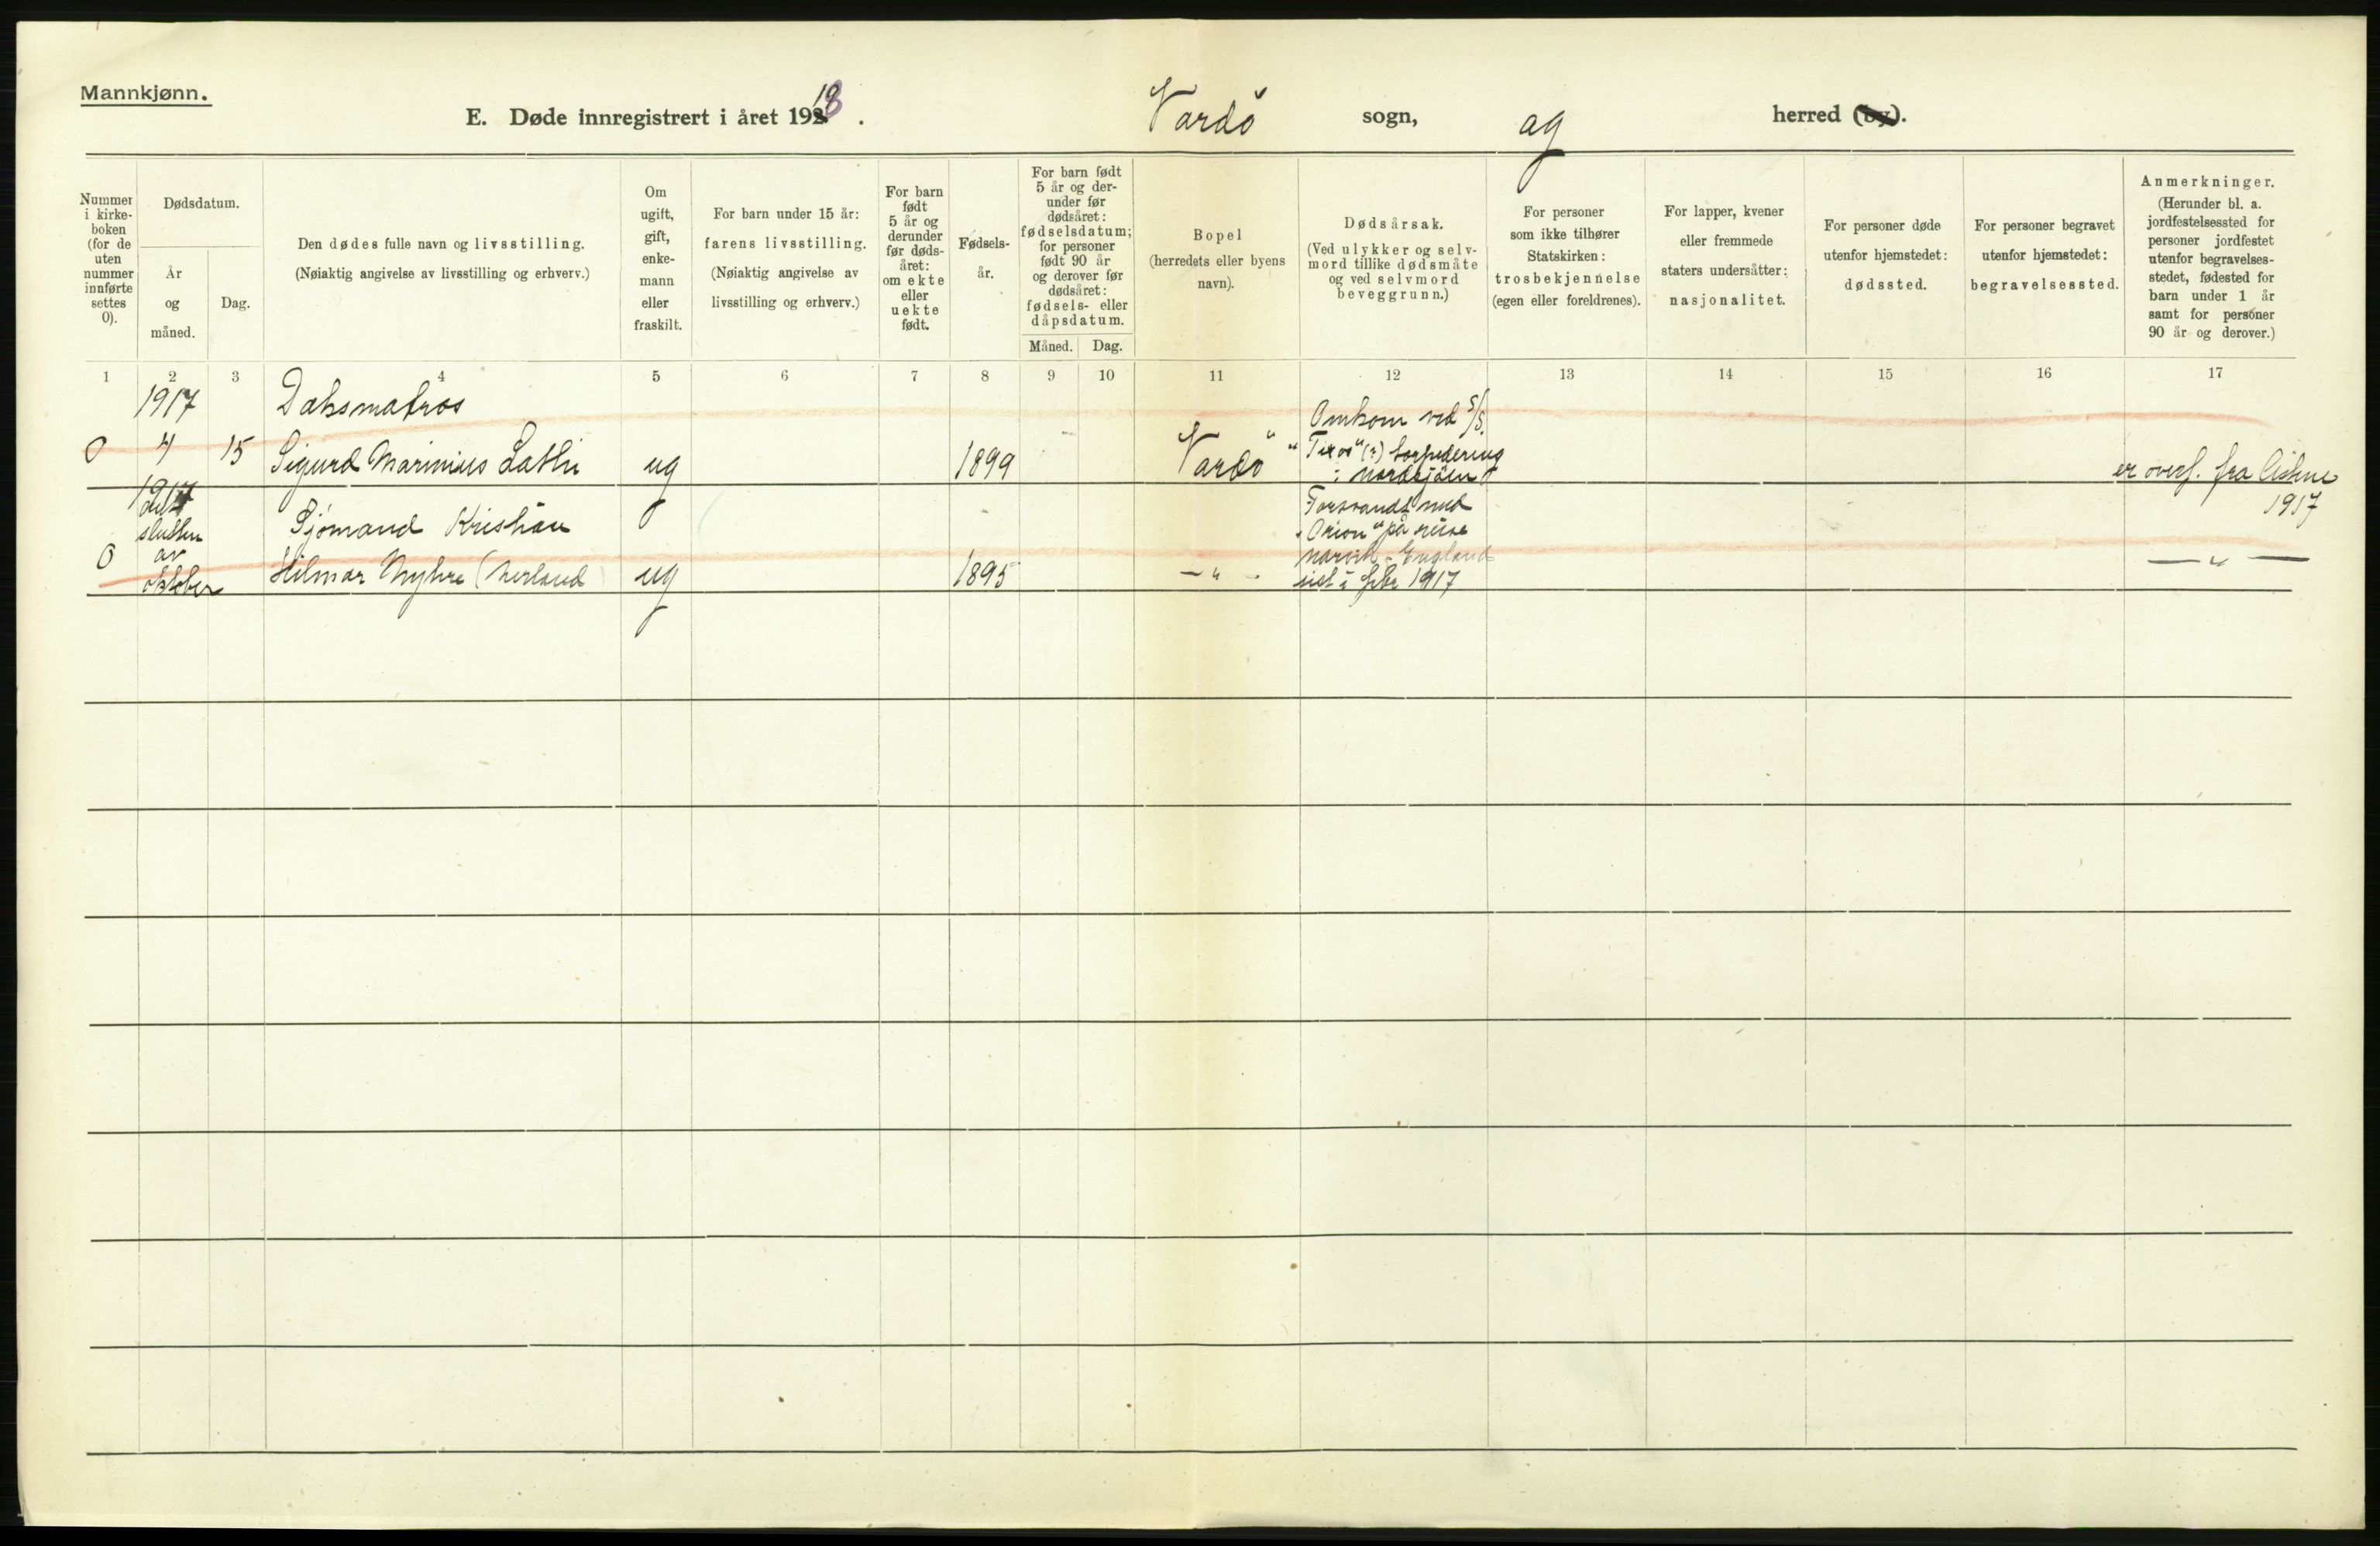 Mannkjønn.
E. Døde innregistrert i året 1918. Vardö sogn, og herred (by).
Nummer i kirkeboken (for de uten nummer innførte settes 0).
Dødsdatum.
År og måned.
Dag.
Den dødes fulle navn og livsstilling.
(Nøiaktig angivelse av livsstilling og erhverv.)
Om ugift, gift, enkemann eller fraskilt.
For barn under 15 år:
farens livsstilling.
(Nøiaktig angivelse av livsstilling og erhverv.)
For barn født 5 år og derunder før dødsåret: om ekte eller uekte født.
Fødselsår.
For barn født 5 år og derunder før dødsåret: fødselsdatum; for personer født 90 år og derover før dødsåret: fødsels- eller dåpsdatum.
Måned. Dag.
Bopel
(herredets eller byens navn).
Dødsårsak.
(Ved ulykker og selvmord tillike dødsmåte og ved selvmord beveggrunn.)
For personer som ikke tilhører Statskirken: trosbekjennelse (egen eller foreldrenes).
For lapper, kvener eller fremmede staters undersåtter: nasjonalitet.
For personer døde utenfor hjemstedet: dødssted.
For personer begravet utenfor hjemstedet: begravelsessted.
Anmerkninger.
(Herunder bl. a. jordfestelsessted for personer jordfestet utenfor begravelsesstedet, fødested for barn under 1 år samt for personer 90 år og derover.)
1 2 3 4 5 6 7 8 9 10 11 12 13 14 15 16 17
1917 Daksmatros Omkom ved S/S.
0 4 15 Sigurd Marinius ug 1899 Vardö (?) torpedering
i Nordsjöen er overf. fra
1917 1917
slutten Sjömand Kristian Forsvandt med
av "Orion" på reise
0 Narvik - England
oktober Hilmar Nyhre ug 1895 — " — sist i febr 1917 — " —